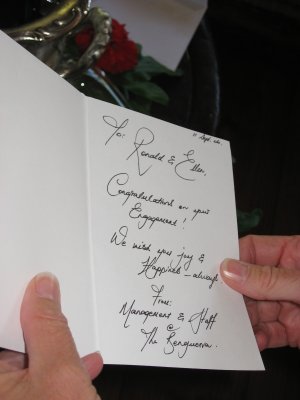 11 Sept.
To: Ronald & Ellen,
Congratulations on your
Engagement!
We wish you joy &
Happiness - always
From:
Management & Staff
@
The